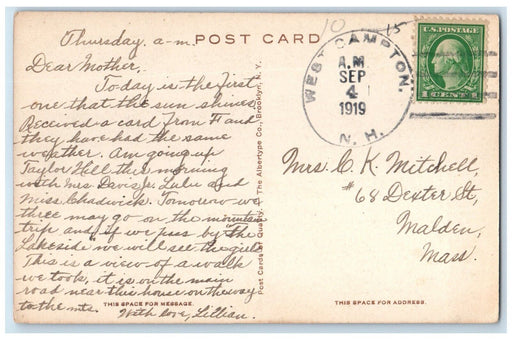 10
15
POST CARD
U.S. POSTAGE
1 CENT 1
WEST CAMPTON,
A.M.
SEP
4
1919
N. H.
Thursday, a-m.
Dear Mother,
Today is the first
one that the sun shines.
Received a card from F and
they have had the same
weather. Am going up
Taylor Hill this morning
with Mrs. Davis, Lulu and
Miss Chadwick. Tomorrow we
three may go on the mountain
trip and if we pass by "The
Lakeside" we will see the girls.
This is a view of a walk
we took, it is on the main
road near this house on the way
to the mts.
With love, Lillian.
THIS SPACE FOR MESSAGE.
Post Cards of Quality. The Albertype Co., Brooklyn, N. Y.
Mrs. C. K. Mitchell,
#68 Dexter St,
Malden,
Mass.
THIS SPACE FOR ADDRESS.